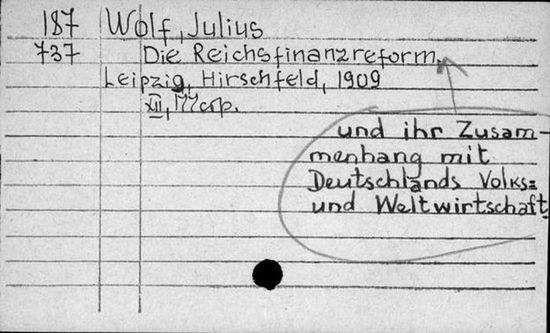 187 Wolf, Julius
737 Die Reichsfinanzreform
Leipzig, Hirschfeld, 1909
XII,
und ihr Zusam-
menhang mit
Deutschlands Volks=
und Weltwirtschaft